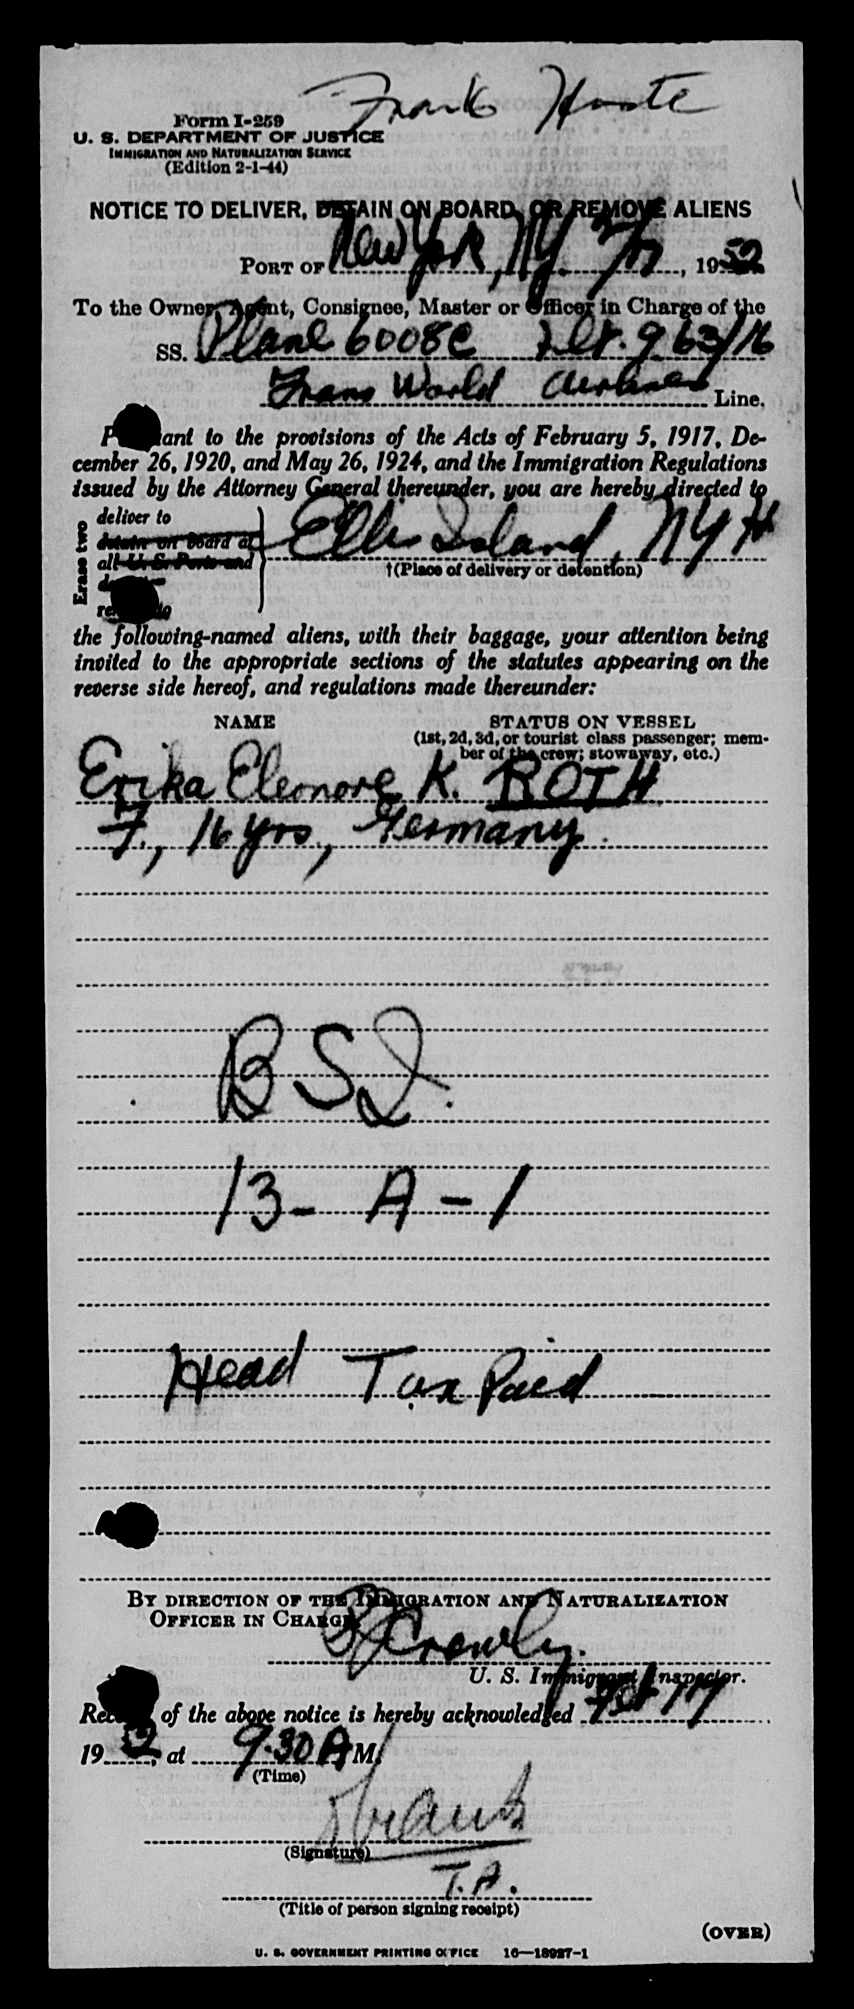 Frank
Form I-259
U. S. DEPARTMENT OF JUSTICE
IMMIGRATION AND NATURALIZATION SERVICE
(Edition 2-1-44)
NOTICE TO DELIVER, DETAIN ON BOARD, OR REMOVE ALIENS
PORT OF New York, NY. 2/17, 1952
To the Owner, Agent, Consignee, Master or Officer in Charge of the
SS. Plane 6008C Flt. 963/16
Trans World Airlines Line.
Pursuant to the provisions of the Acts of February 5, 1917, De-
cember 26, 1920, and May 26, 1924, and the Immigration Regulations
issued by the Attorney General thereunder, you are hereby directed to
Erase two
deliver to
detain on board at Ellis Island, NYH
all U. S. Ports and
†(Place of delivery or detention)
the following-named aliens, with their baggage, your attention being
invited to the appropriate sections of the statutes appearing on the
reverse side hereof, and regulations made thereunder:
NAME STATUS ON VESSEL
(1st, 2d, 3d, or tourist class passenger; mem-
ber of the crew; stowaway, etc.)
Erika Eleonore K. ROTH
F., 16 yrs, Germany.
BSI.
13- A-1
Head Tax Paid
BY DIRECTION OF THE IMMIGRATION AND NATURALIZATION
OFFICER IN CHARGE
Crowly.
U. S. Immigrant Inspector.
Receipt of the above notice is hereby acknowledged Feb 17
1952, at 9.30 A M.
(Time)
(Signature)
T.A.
(Title of person signing receipt)
(OVER)
U. S. GOVERNMENT PRINTING OFFICE 16—18927-1